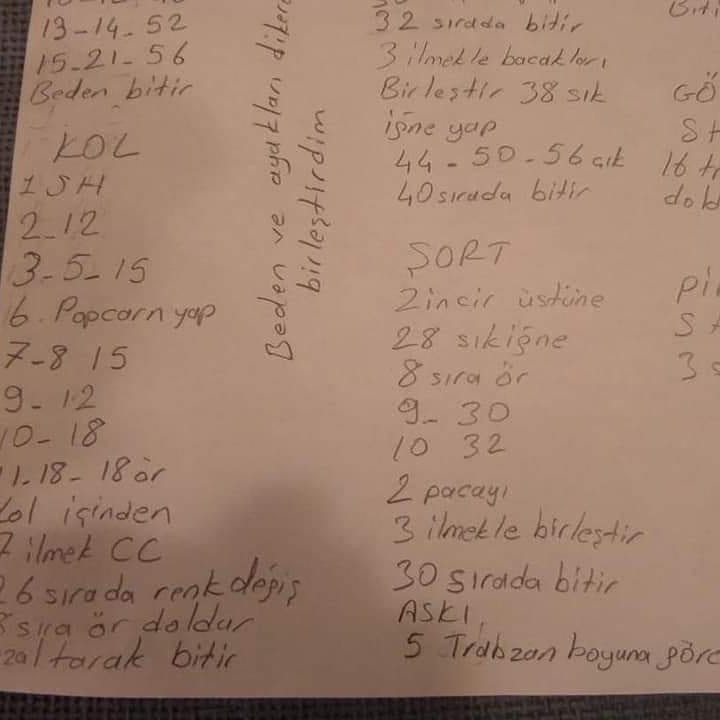 13-14-52
15-21-56
Beden bitir
KOL
1 SH
2-12
3-5-15
6. Popcorn yap
7-8 15
9-12
10-18
11.18-18 ör
Kol içinden
7 ilmek CC
26 sırada renk değiş
sıra ör doldur
zaltarak bitir
Beden ve ayakları dikere
birleştirdim
32 sırada bitir
3 ilmekle bacakları
Birleştir 38 sık
iğne yap
44-50-56 çık
40 sırada bitir
ŞORT
2 incir üstüne
28 sıkiğne
8 sıra ör
9-30
10 32
2 paçayı
3 ilmekle birleştir
30 sırada bitir
ASKI
5 Trabzan boyuna göre
Biti
GÖ
16 tr
dold
pi
3 s